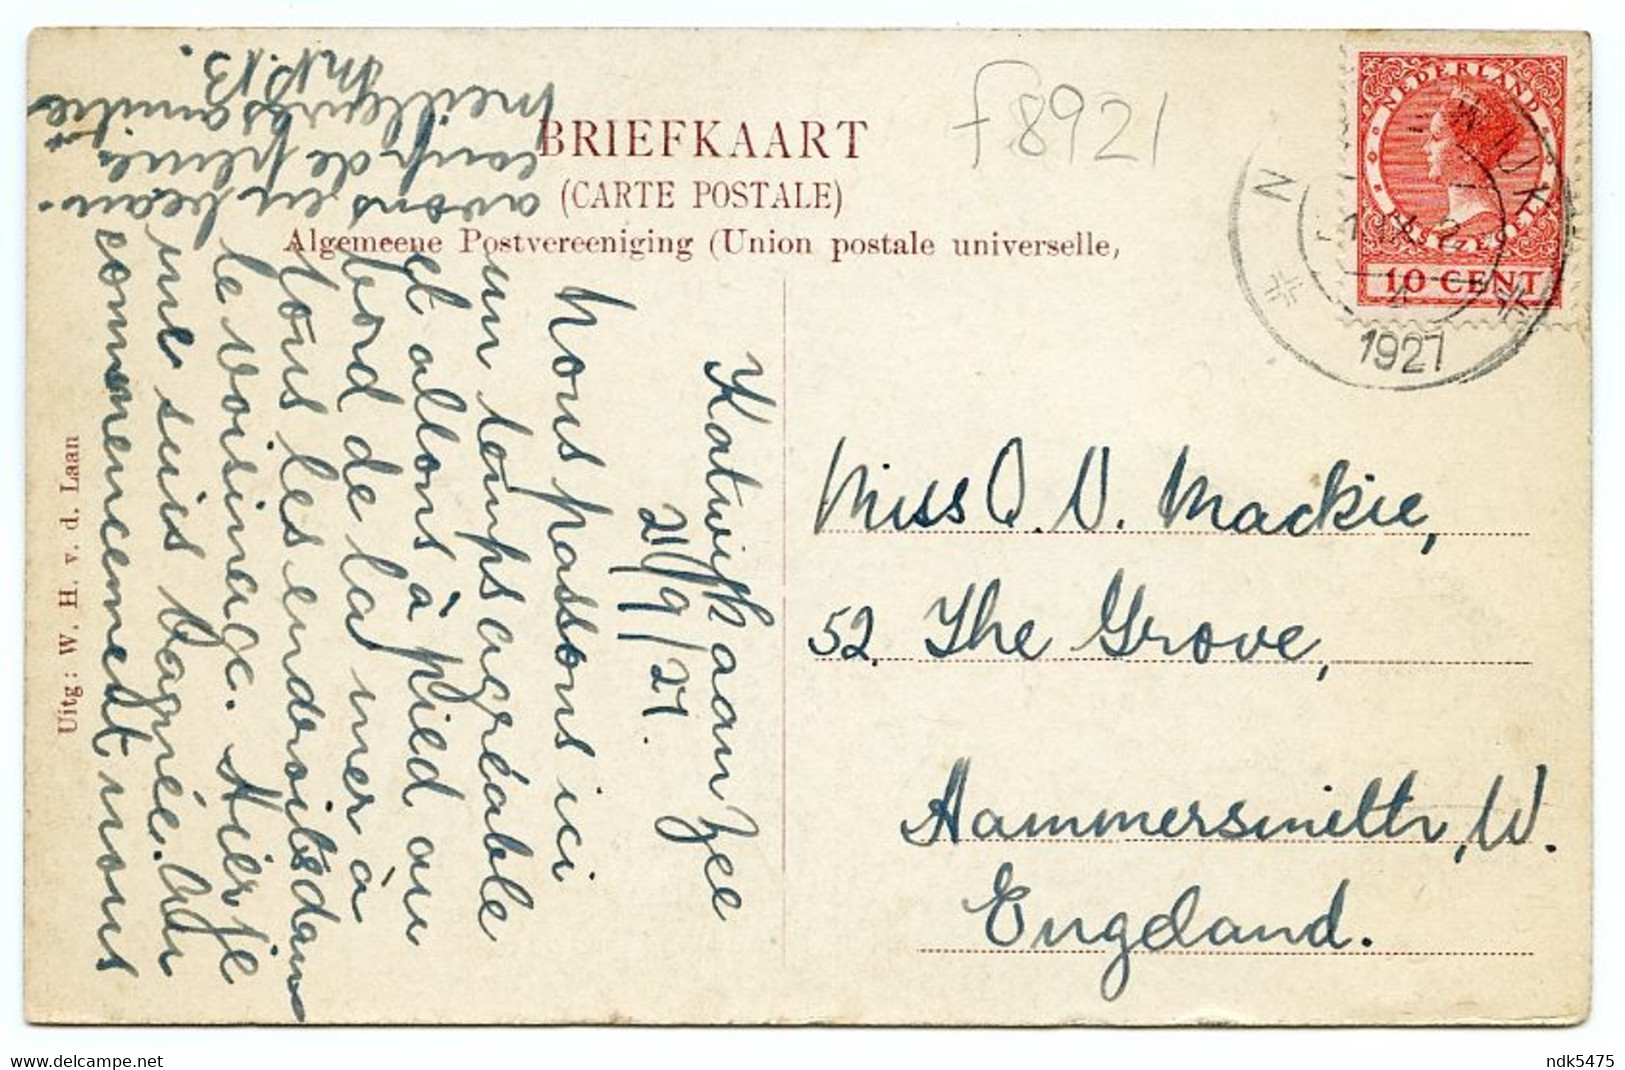 BRIEFKAART
(CARTE POSTALE)
Algemeene Postvereeniging (Union postale universelle,
f8921
NEDERLAND
10 CENT
1927
Katwijk aan Zee
21/9/27.
Nous passons ici
un temps agréable
et allons à pied au
bord de la mer à
tous les endroits dans
le voisinage. Hier je
me suis baignée. Au
commencement nous
avons eu beau-
coup de pluie
Meilleures amitiés
M.P.B.
Miss O. V. Mackie,
52, The Grove,
Hammersmith, W.
England.
Uitg: W. H. v. d. Laan
ndk5475